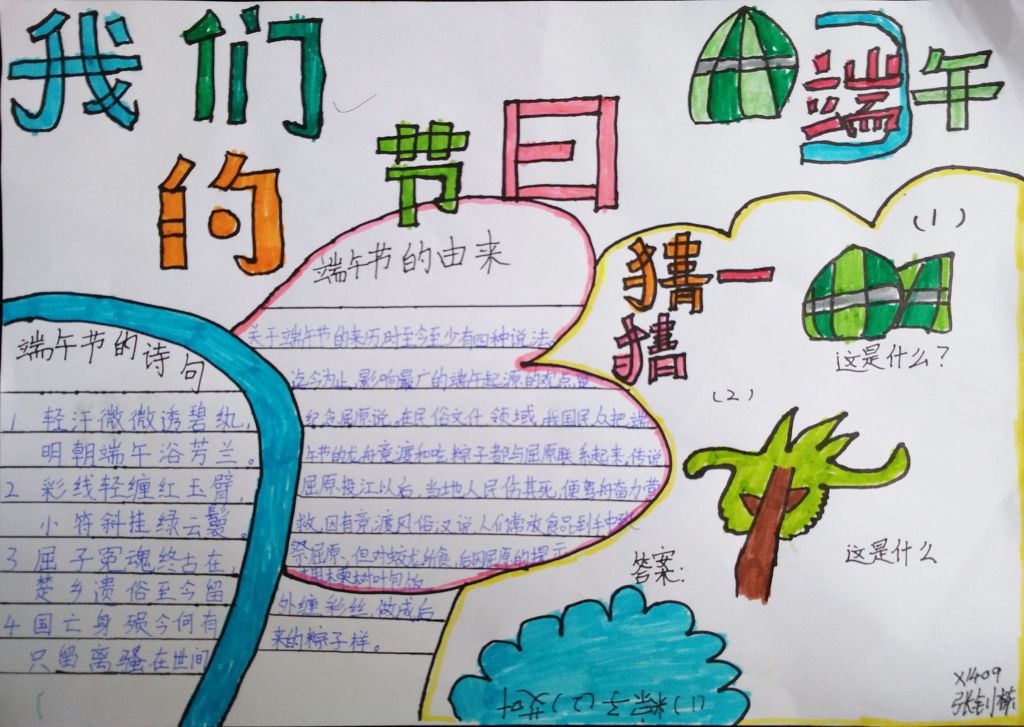 我们
的节日
端午
端午节的诗句
1 轻汗微微透碧纨,
明朝端午浴芳兰。
2 彩线轻缠红玉臂,
小符斜挂绿云鬟。
3 屈子冤魂终古在,
楚乡遗俗至今留
4 国亡身殒今何有
只留离骚在世间
端午节的由来
关于端午节的来历时至今至少有四种说法
迄今为止,影响最广的端午起源的观点是
纪念屈原说,在民俗文化领域,我国民众把端
午节的龙舟竞渡和吃粽子都与屈原联系起来,传说
屈原投江以后,当地人民伤其死,便驾舟奋力营
救,因有竞渡风俗,又说人们常放食品到水中致
祭屈原,但多为蛟龙所食,后因屈原的提示
才用楝树叶包饭
外缠彩丝,做成后
来的粽子样。
猜一
猜
(1)
这是什么?
(2)
这是什么
答案:
(1)粽子(2)艾叶
X1409